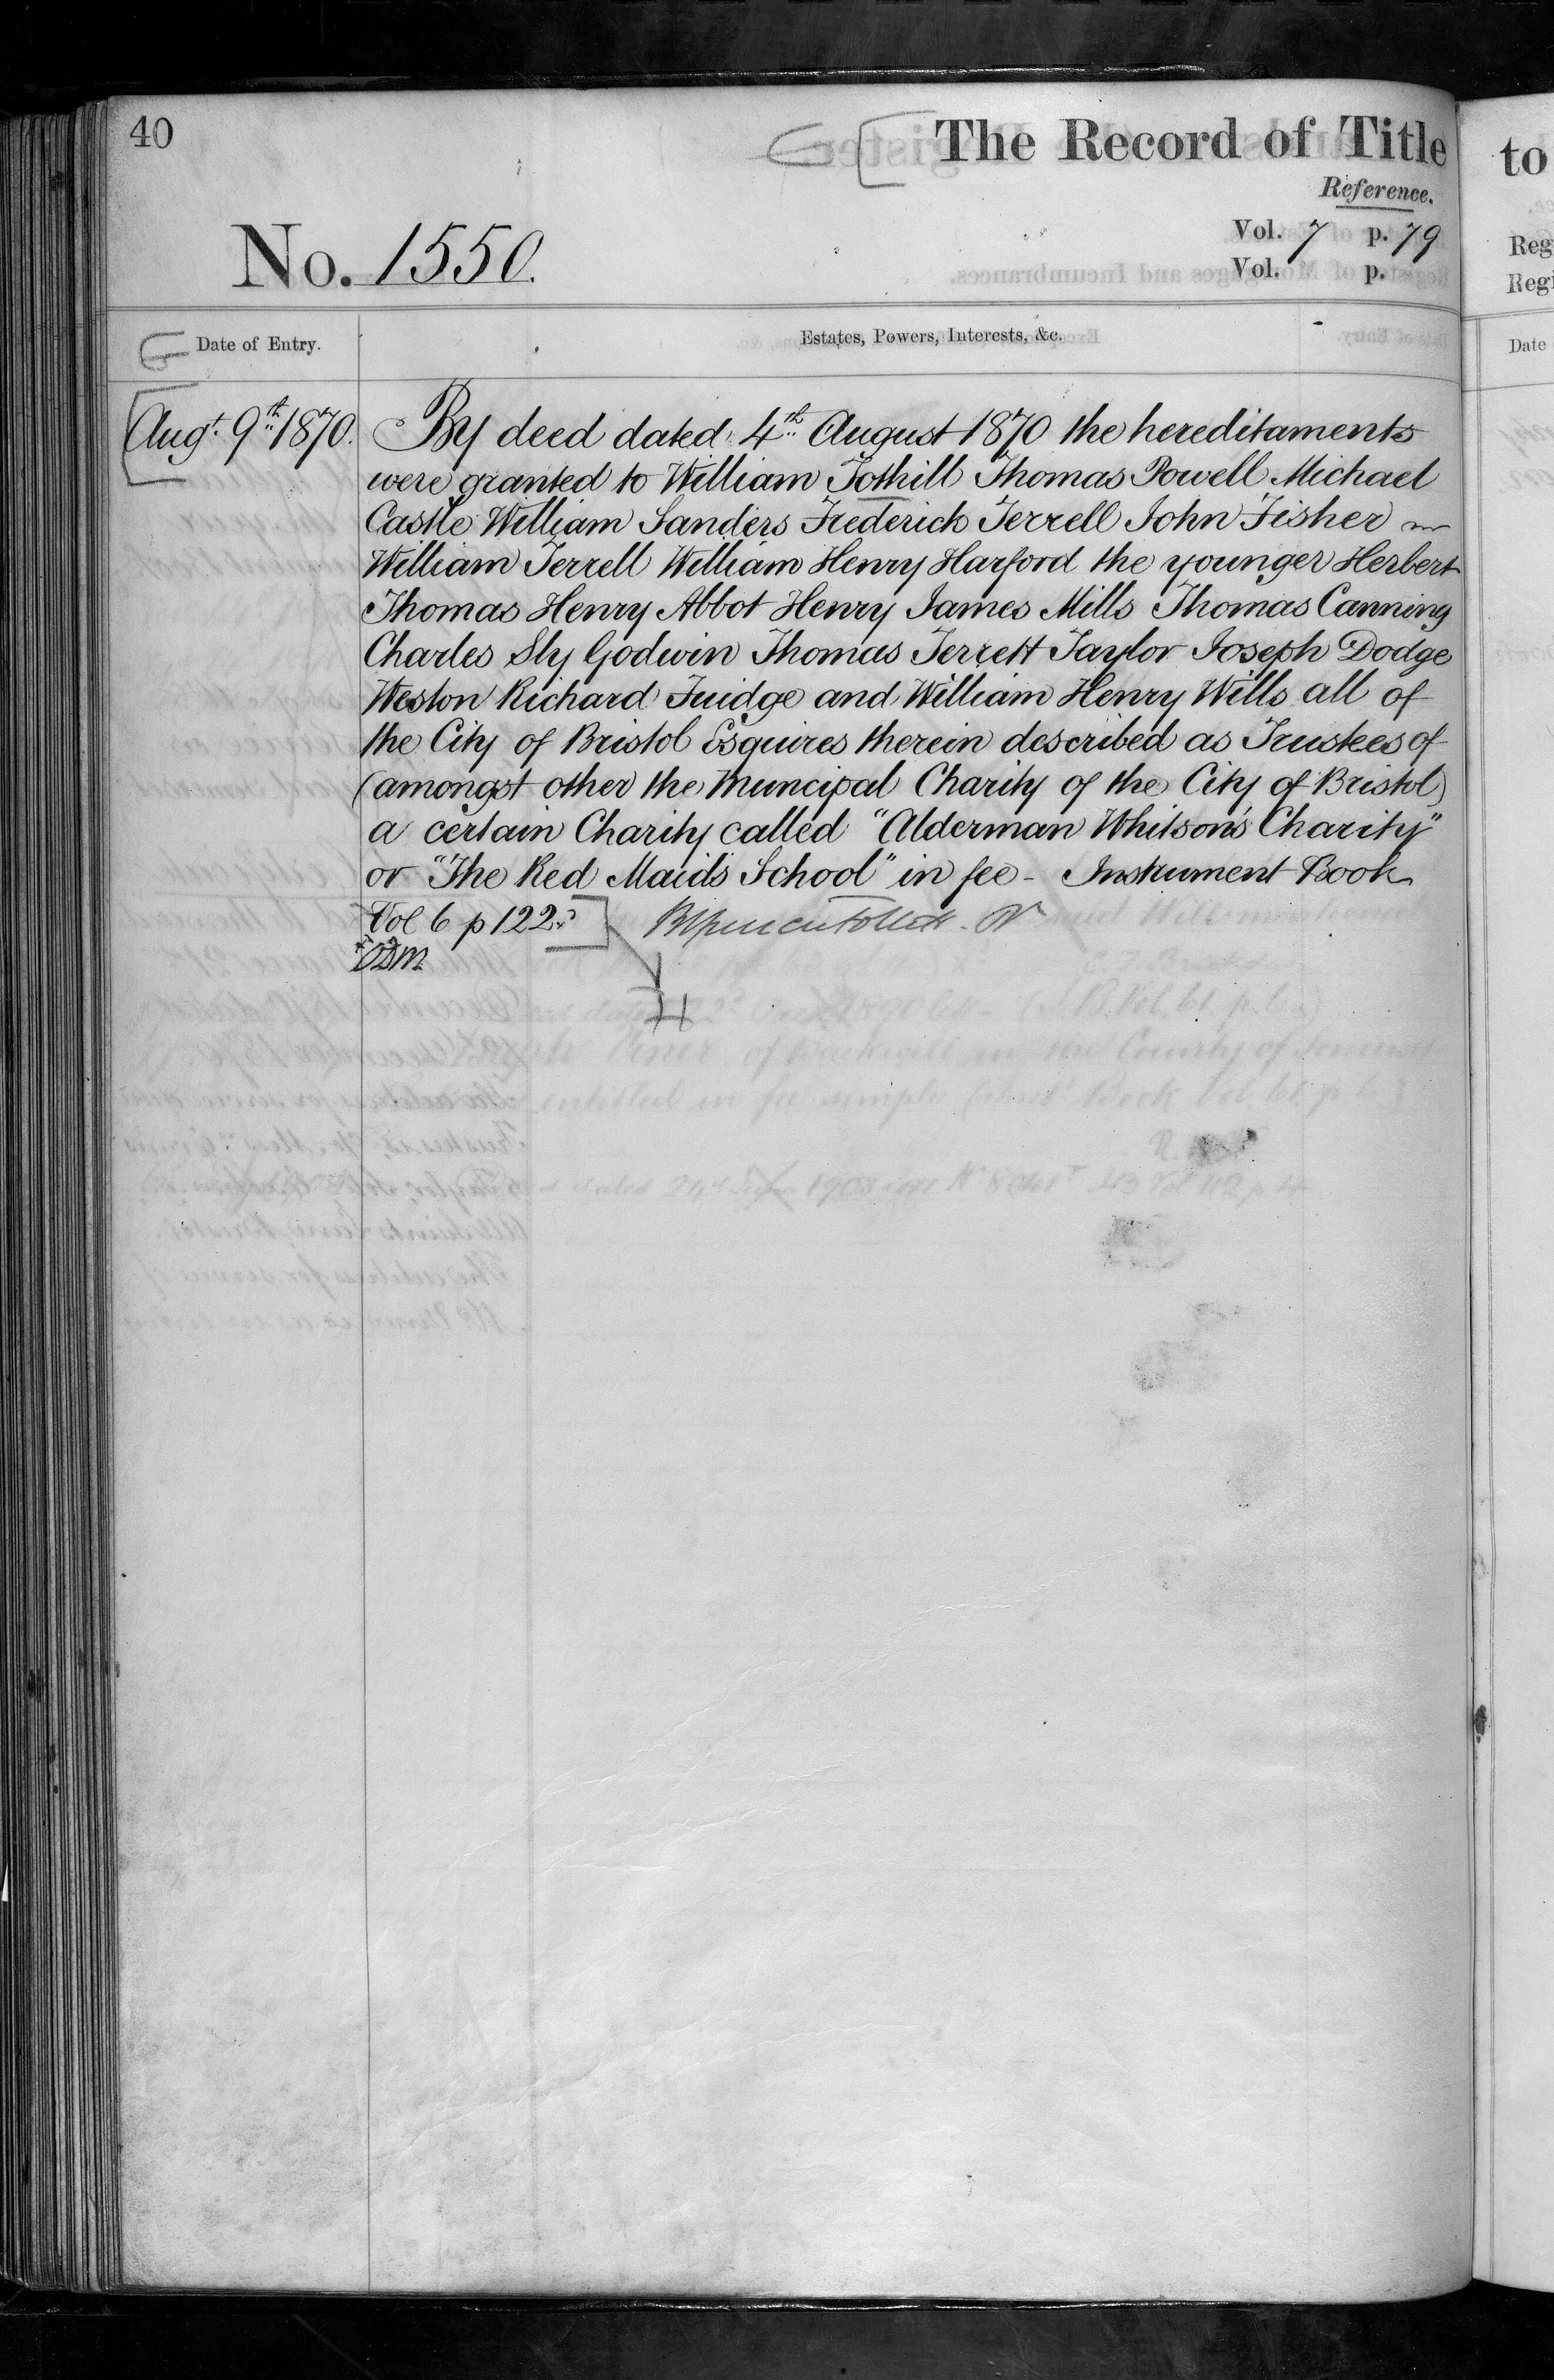 40
The Record of Title
Reference.
No. 1550.
Vol. 7 p. 79
Vol. p.
Date of Entry.
Estates, Powers, Interests, &c.
Augt. 9th 1870. By deed dated 4th August 1870 the hereditaments
were granted to William Tothill Thomas Powell Michael
Castle William Sanders Frederick Terrell John Fisher
William Terrell William Henry Harford the younger Herbert
Thomas Henry Abbot Henry James Mills Thomas Canning
Charles Sly Godwin Thomas Terrett Taylor Joseph Dodge
Weston Richard Fuidge and William Henry Wills all of
the City of Bristol Esquires therein described as Trustees of
(amongst other the Muncipal Charity of the City of Bristol)
a certain Charity called "Alderman Whitson's Charity"
or "The Red Maids School" in fee - Instrument Book
Vol 6 p 122
to
Reg
Regi
Date